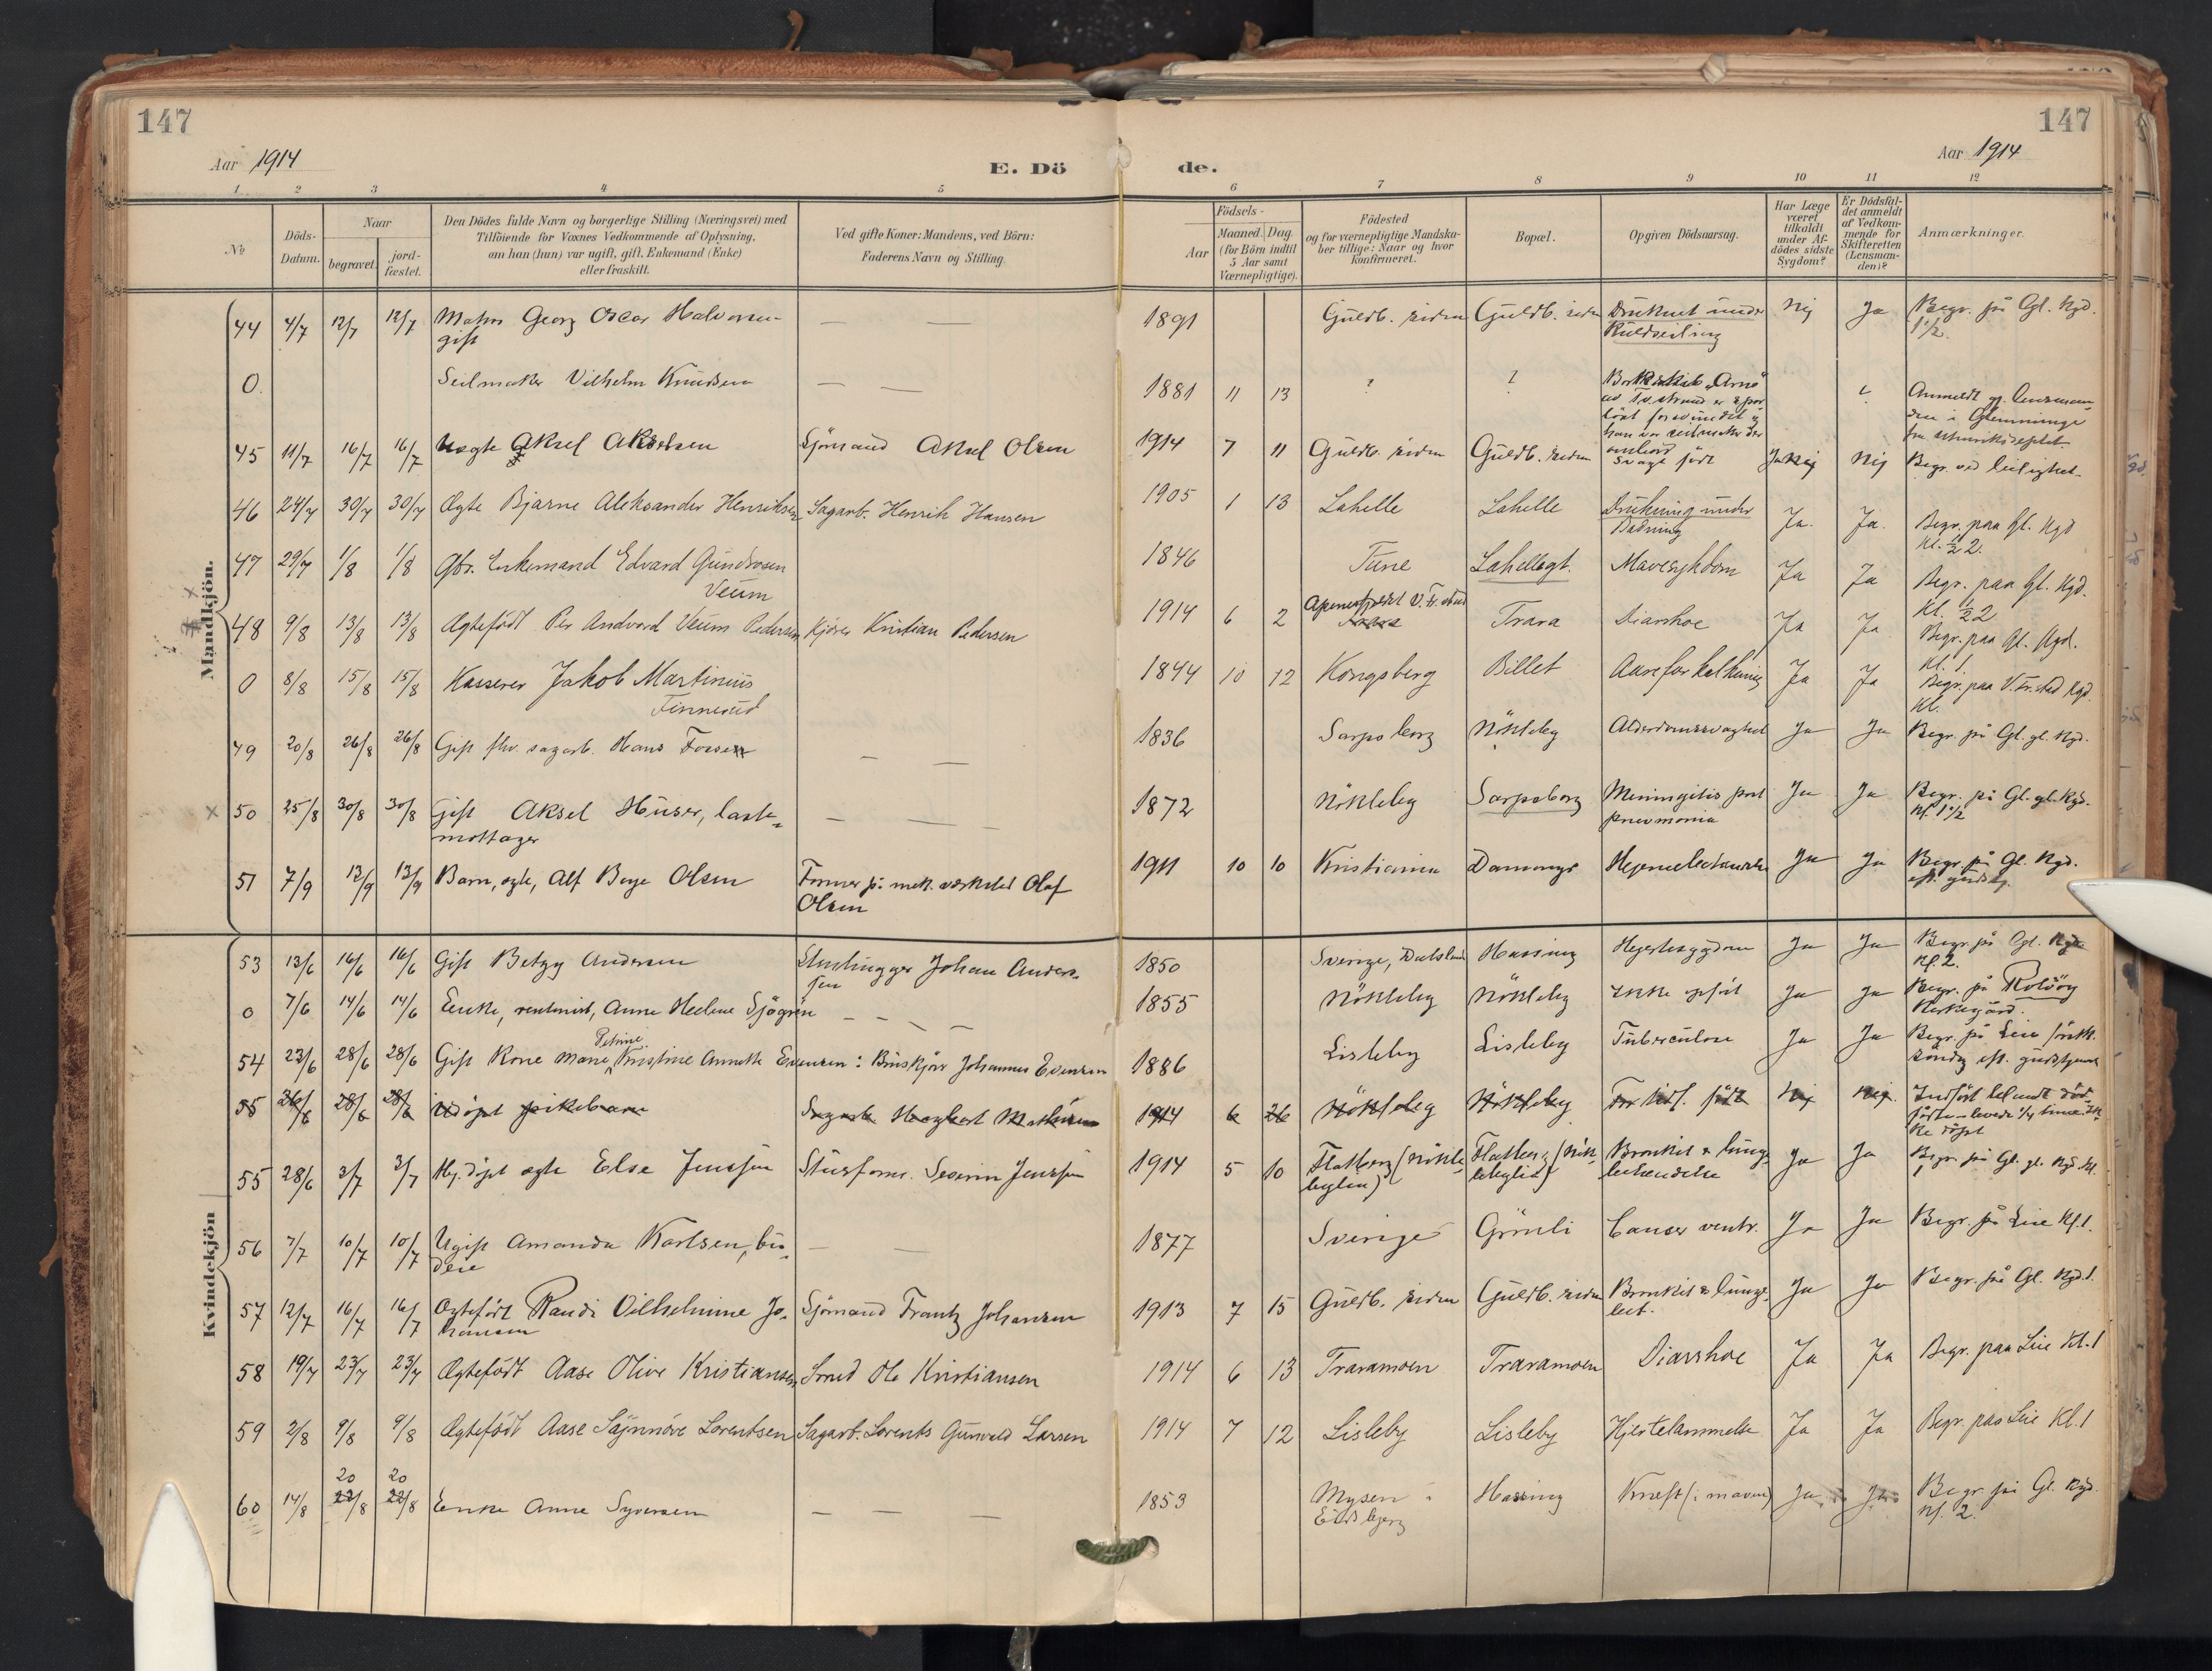 147
147
Aar 1914
E. Dö
de.
Aar 1914
1 2 3 4 5 6 7 8 9 10 11 12
No
Döds-Datum.
Naar
begravet.
jord-fæstet.
Den Dödes fulde Navn og borgerlige Stilling (Næringsvei) med
Tilföiende for Voxnes Vedkommende af Oplysning,
om han (hun) var ugift, gift, Enkemand (Enke)
eller fraskilt.
Ved gifte Koner: Mandens, ved Börn:
Faderens Navn og Stilling.
Födsels-
Aar
Maaned. Dag.
(for Börn indtil
5 Aar samt
Værnepligtige).
Födested
og for værnepligtige Mandska-
ber tillige: Naar og hvor
konfirmeret.
Bopæl.
Opgiven Dödsaarsag.
Har Læge
været
tilkaldt
under Af-
dödes sidste
Sygdom?
Er Dödsfal-
det anmeldt
af Vedkom-
mende for
Skifteretten
(Lensman-
den)?
Anmærkninger.
Mandkjön.
44 4/7 12/7 12/7 Matros Georg Oscar Halvorsen — — 1891 Guldb. siden Guldb. siden Druknet under Nej Ja Begr. på Gl. Kgd.
gift Kuldseiling 1 1/2.
0. Seilmaker Vilhelm Knudsen — — 1881 11 13 ? ? Anmeldt
45 11/7 16/7 16/7 uægte Aksel Akselsen Sjömand Aksel Olsen 1914 7 11 Guldb. siden Guldb. siden svagt födt Nej Nej Begr. ved leilighet.
46 24/7 30/7 30/7 Ægte Bjarne Aleksander Henriksen Sagarb. Henrik Hansen 1905 1 13 Lahelle Lahelle Drukning under Ja. Ja. Begr. paa Gl. Kgd
Badning Kl. 1/2 2.
47 29/7 1/8 1/8 Gbr. Enkemand Edvard Gundrosen 1846 Tune Lahellegt. Mavesykdom Ja Ja Begr. paa Gl. Kgd.
Veum Kl. 1/2 2
48 9/8 13/8 13/8 Ægtefödt Per Andvord Veum Pedersen Kjörer Kristian Pedersen 1914 6 2 Trara Diarrhoe Ja Ja Begr. paa Gl. Kgd.
Kl. 1
0 8/8 15/8 15/8 Kasserer Jakob Martinius 1844 10 12 Kongsberg Billet Aareforkalkning Ja Ja Begr. paa V. Fr.stad Kgd.
Finnerud Kl.
49 20/8 26/8 26/8 Gift fhv. sagarb. Hans Fossen — — 1836 Sarpsborg Nökleby Alderdomssvaghet Ja Ja Begr. på Gl. gl. Kgd.
50 25/8 30/8 30/8 Gift Aksel Huser, laste- — — — 1872 Nökleby Sarpsborg Meningitis post Ja Ja Begr. på Gl. gl. Kgd.
mottager pneumonia Kl. 1 1/2
51 7/9 13/9 13/9 Barn, ægte, Alf Beye Olsen Former på mek. værksted Olaf 1911 10 10 Kristiania Ja Ja Begr. på Gl. Kgd.
Olsen
Kvindekjön
53 13/6 16/6 16/6 Gift Betzy Andersen Stenhugger Johan Ander- 1850 Sverige, Hassing Hjertesygdom Ja Ja Begr på Gl. Kgd
sen Kl. 2.
0 7/6 14/6 14/6 Enke, rentenist, Anne Helene Sjögrén — — — — 1855 Nökleby Nökleby Ikke opfört Ja Ja Begr. på Rolsöy
Kirkegård.
Petrine
54 23/6 28/6 28/6 Gift Kone Marie Kristine Annette Evensen: Buskjör Johannes Evensen 1886 Lisleby Lisleby Tuberculose Ja Ja Begr. på Leie
söndag eft. gudstjeneste
55 26/6 28/6 28/6 Udöpt pikebarn Sagarb. 1914 6 26 Nökleby Nökleby For tidl. födt Nej Nej. Indfört blandt död-
födte – levede 1/4 time. Ik-
ke döpt
55 28/6 3/7 3/7 Hj.döpt ægte Else Jenssen Severin Jenssen 1914 5 10 Flatberg (Nökle- Flatberg (Nök- Bronkit & lunge- Ja Ja Begr. på Gl. gl. Kgd. Kl.
lebetændelse 1
56 7/7 10/7 10/7 Ugift Amanda Karlsen, bu- — — 1877 Sverige Grönli Cancer ventr. Ja Ja Begr. på Leie Kl. 1.
deie
57 12/7 16/7 16/7 Ægtefödt Randi Vilhelmine Jo- Sjömand Frantz Johansen 1913 7 15 Guldb. siden Guldb. siden Bronkit & lunge- Ja Ja Begr. på Gl. Kgd. 1.
hansen bet.
58 19/7 23/7 23/7 Ægtefödt Aase Olive Kristiansen Smed Ole Kristiansen 1914 6 13 Traramoen Traramoen Diarrhoe Ja Ja Begr. paa Leie Kl. 1
59 2/8 9/8 9/8 Ægtefödt Aase Synnöve Lorentsen Sagarb. Lorents Gunvald Larsen 1914 7 12 Lisleby Lisleby Hjertelammelse Ja Ja Begr. paa Leie Kl. 1
20 20
60 14/8 22/8 22/8 Enke Anne Syversen — — — 1853 Mysen i Hassing Kræft (i maven) Ja Ja Begr. på Gl. Kgd.
Eidsberg Kl. 2.